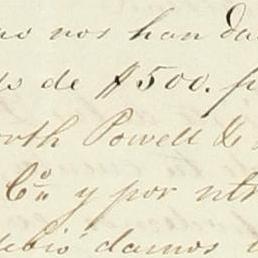 nos han da
de $500. p
orth Powell &
Co. y por ntr
debió damos